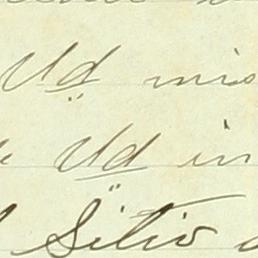 Ud mis
Ud in
Sitio